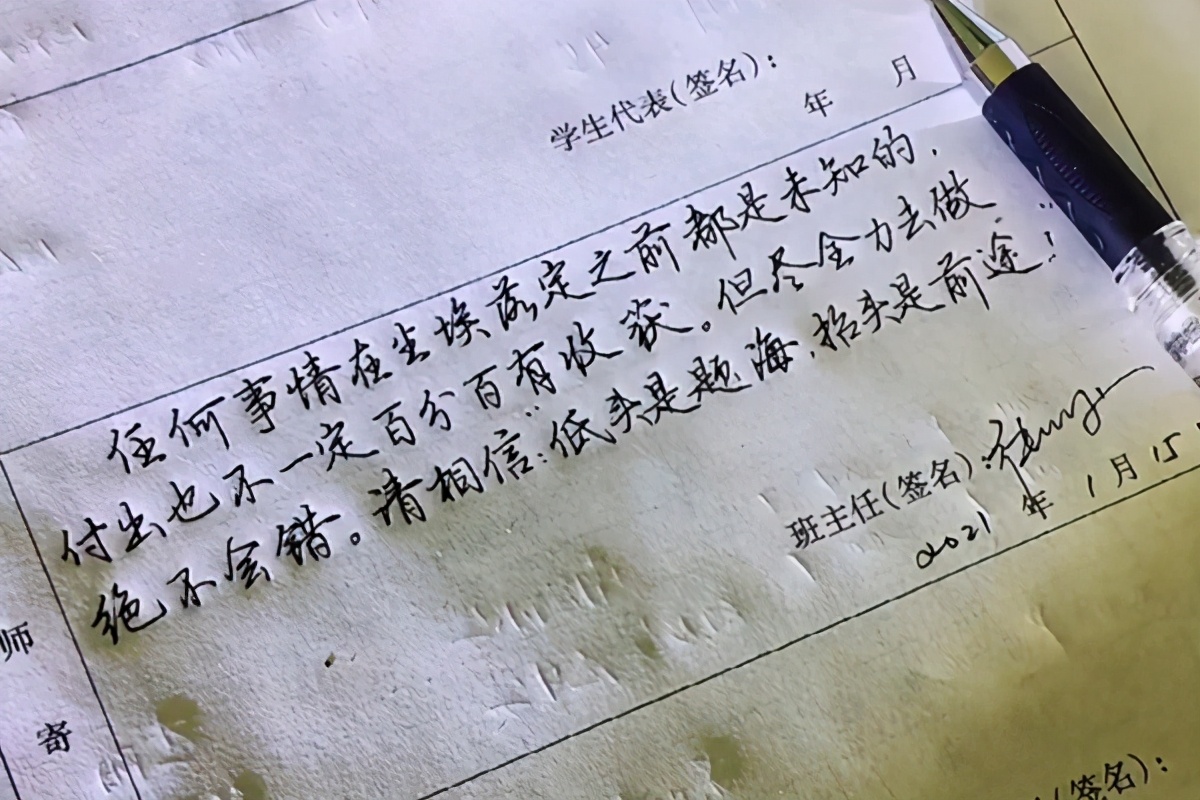 学生代表(签名):
年 月
任何事情在尘埃落定之前都是未知的,
付出也不一定百分百有收获。但尽全力去做
绝不会错。请相信:“低头是题海,抬头是前途!”
班主任(签名):
2021 年 1 月 15
师
寄
(签名):